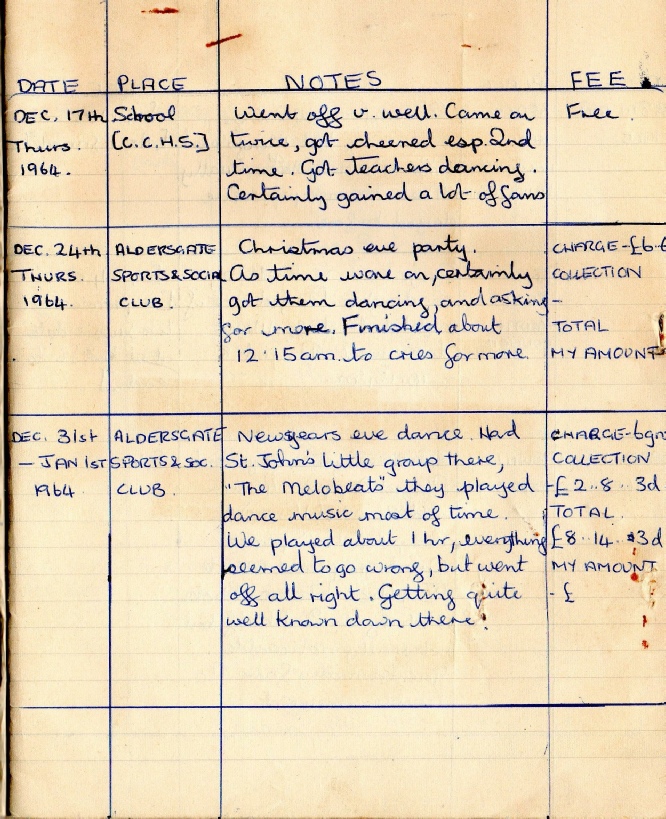 DATE PLACE NOTES FEE
DEC. 17th School Went off v. well. Came on Free.
Thurs. [C.C.H.S.] twice, got cheered esp. 2nd
1964. time. Got teachers dancing.
Certainly gained a lot of fans
DEC. 24th ALDERSGATE Christmas eve party. CHARGE-£6-6
THURS. SPORTS & SOCIAL As time wore on, certainly COLLECTION
1964. CLUB. got them dancing, and asking -
for more. Finished about TOTAL
12.15am. to cries for more. MY AMOUNT
DEC. 31st ALDERSGATE Newyears eve dance. Had CHARGE-6gns
- JAN 1st SPORTS & SOC. St. John's little group there, COLLECTION
1964 CLUB. "The Melobeats" they played -£2..8..3d
dance music most of time. TOTAL.
We played about 1 hr, everything £8..14..3d
seemed to go wrong, but went MY AMOUNT
off all right. Getting quite - £
well known down there.